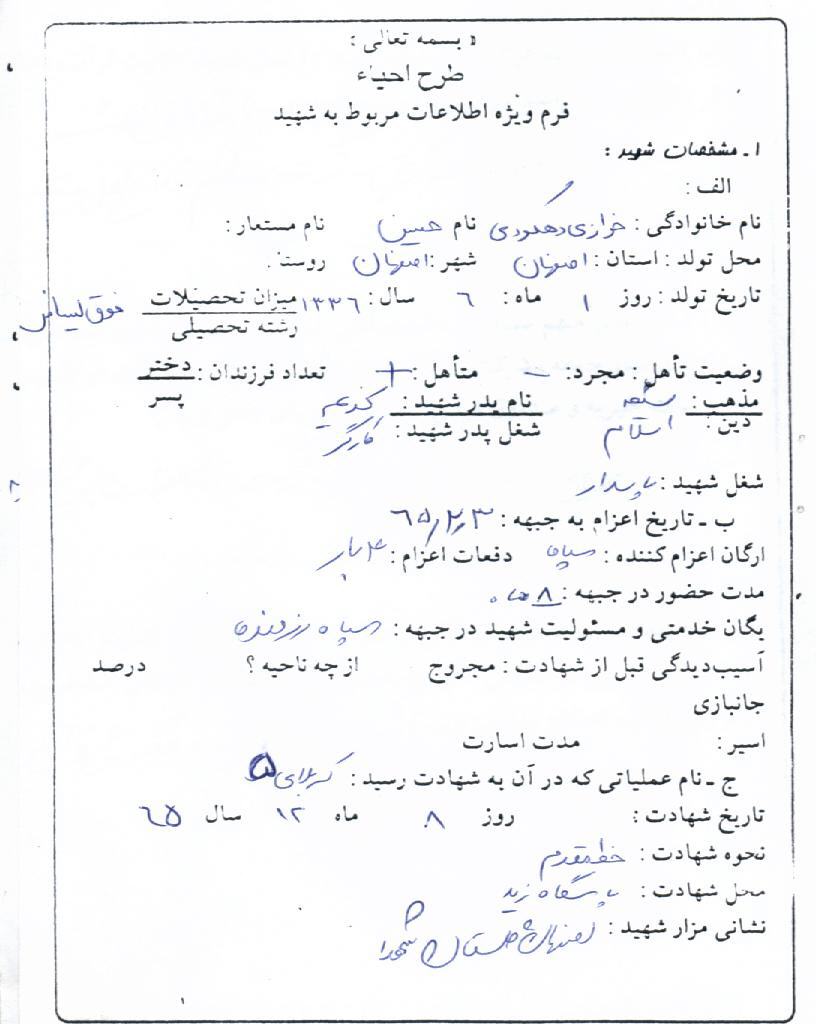 « بسمه تعالی :
طرح احیاء
فرم ویژه اطلاعات مربوط به شهید
۱ـ مشخصات شهید :
الف :
نام خانوادگی : خرازی دهکردی نام حسین نام مستعار :
محل تولد : استان : اصفهان شهر : اصفهان روستا .
تاریخ تولد : روز ۱ ماه : ۶ سال : ۱۳۳۶ میزان تحصیلات فوق لیسانس
رشته تحصیلی
وضعیت تأهل : مجرد : – متأهل : + تعداد فرزندان : دختر
پسر
مذهب : شیعه نام پدر شهید : کریم
دین : اسلام شغل پدر شهید : کارگر
شغل شهید : پاسدار
ب ـ تاریخ اعزام به جبهه : ۶۵/۲/۳
ارگان اعزام کننده : سپاه دفعات اعزام : ۴ بار
مدت حضور در جبهه : ۸ ماه
یگان خدمتی و مسئولیت شهید در جبهه : سپاه رزمنده
آسیب‌دیدگی قبل از شهادت : مجروح از چه ناحیه ؟ درصد
جانبازی
اسیر : مدت اسارت
ج ـ نام عملیاتی که در آن به شهادت رسید : کربلای ۵
تاریخ شهادت : روز ۸ ماه ۱۲ سال ۶۵
نحوه شهادت : خط مقدم
محل شهادت : پاسگاه زید
نشانی مزار شهید : اصفهان گلستان شهدا
۱